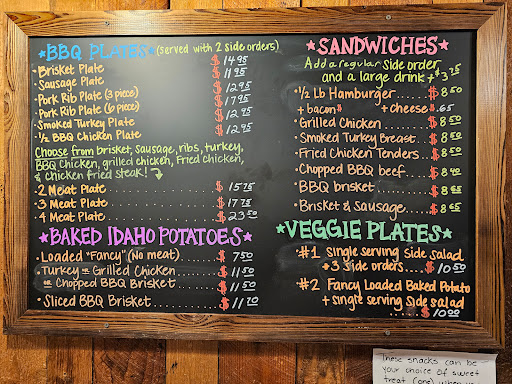 ★BBQ PLATES★ (served with 2 side orders)
• Brisket Plate $14.95
• Sausage Plate $11.95
• Pork Rib Plate (3 piece) $12.95
• Pork Rib Plate (6 piece) $17.95
• Smoked Turkey Plate $12.95
• ½ BBQ Chicken Plate $12.95
Choose from brisket, sausage, ribs, turkey,
BBQ Chicken, grilled chicken, Fried chicken,
& chicken fried steak!
• 2 Meat Plate $15.75
• 3 Meat Plate $17.75
• 4 Meat Plate $23.50
★BAKED IDAHO POTATOES★
• Loaded "Fancy" (No meat) $7.50
• Turkey or Grilled Chicken $11.50
or Chopped BBQ Brisket $11.50
• Sliced BBQ Brisket $11.70
★SANDWICHES★
Add a regular side order
and a large drink +$3.75
• ½ Lb Hamburger $8.50
+ bacon + cheese .65
• Grilled Chicken $8.50
• Smoked Turkey Breast $8.50
• Fried Chicken Tenders $8.50
• Chopped BBQ beef $8.40
• BBQ brisket $8.65
• Brisket & Sausage $8.65
★VEGGIE PLATES★
• #1 single serving side salad
+ 3 side orders $10.50
• #2 Fancy Loaded Baked Potato
+ single serving side salad
$10.00
These snacks can be
your choice of sweet
treat (one) when